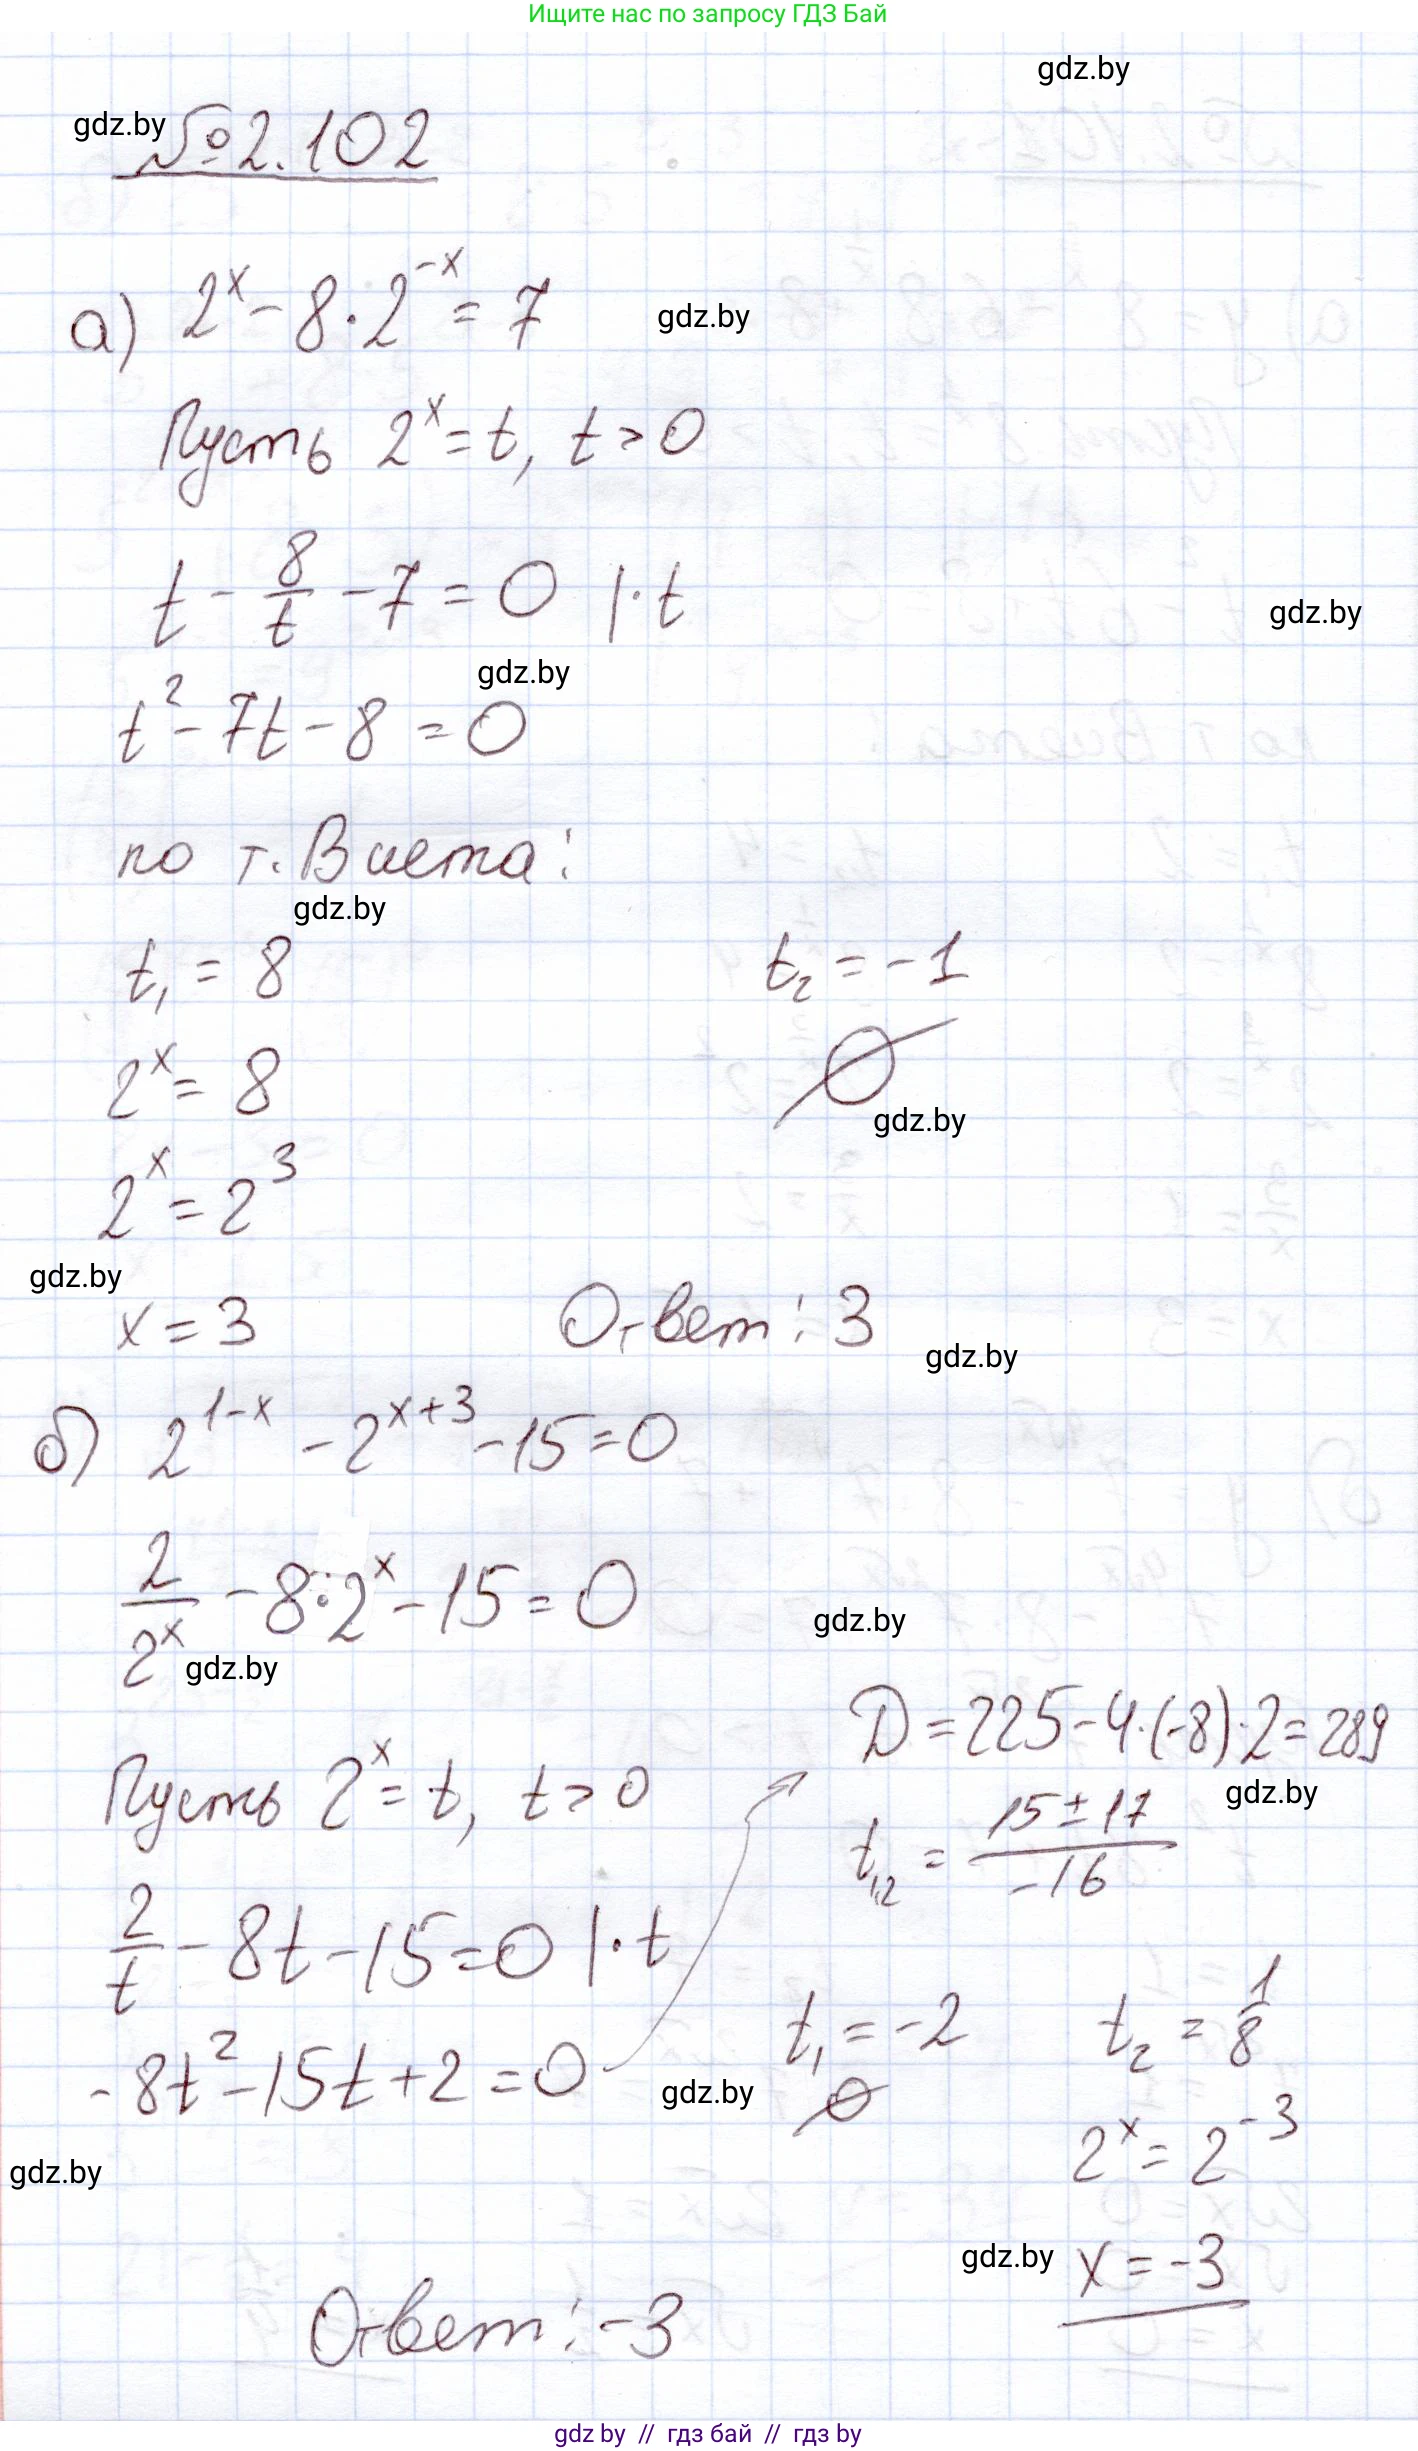 Ищите нас по запросу ГДЗ Бай
gdz.by
gdz.by
№2.102
а) 2^x - 8·2^{-x} = 7
gdz.by
Пусть 2^x = t, t > 0
t - 8/t - 7 = 0 |·t
gdz.by
gdz.by
t² - 7t - 8 = 0
по т. Виета:
gdz.by
t₁ = 8 t₂ = -1
2^x = 8 ∅
gdz.by
2^x = 2³
gdz.by
x = 3 Ответ: 3
gdz.by
б) 2^{1-x} - 2^{x+3} - 15 = 0
2/2^x - 8·2^x - 15 = 0
gdz.by
gdz.by
Пусть 2^x = t, t > 0
2/t - 8t - 15 = 0 |·t
-8t² - 15t + 2 = 0
D = 225 - 4·(-8)·2 = 289
gdz.by
t₁,₂ = (15 ± 17)/(-16)
t₁ = -2 t₂ = 1/8
∅
gdz.by
2^x = 2^{-3}
gdz.by
gdz.by
x = -3
Ответ: -3
gdz by // гдз бай // гдз by